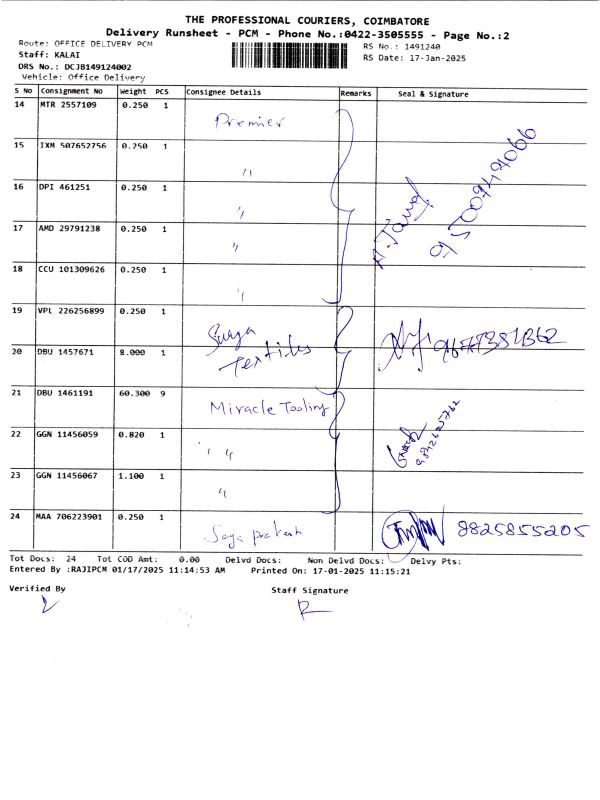 THE PROFESSIONAL COURIERS, COIMBATORE
Delivery Runsheet - PCM - Phone No.:0422-3505555 - Page No.:2
Route: OFFICE DELIVERY PCM
Staff: KALAI
DRS No.: DCJB149124002
Vehicle: Office Delivery
RS No.: 1491240
RS Date: 17-Jan-2025
S No Consignment No Weight PCS Consignee Details Remarks Seal & Signature
14 MTR 2557109 0.250 1 Premier
15 IXM 507652756 0.250 1 "
16 DPI 461251 0.250 1 "
17 AMD 29791238 0.250 1 "
18 CCU 101309626 0.250 1 "
19 VPL 226256899 0.250 1 Surya
20 DBU 1457671 8.000 1 Textiles
21 DBU 1461191 60.300 9 Miracle Tooling
22 GGN 11456059 0.820 1 " "
23 GGN 11456067 1.100 1 "
24 MAA 706223901 0.250 1 prakash 8825855205
Tot Docs: 24 Tot COD Amt: 0.00 Delvd Docs: Non Delvd Docs: Delvy Pts:
Entered By :RAJIPCM 01/17/2025 11:14:53 AM Printed On: 17-01-2025 11:15:21
Verified By Staff Signature